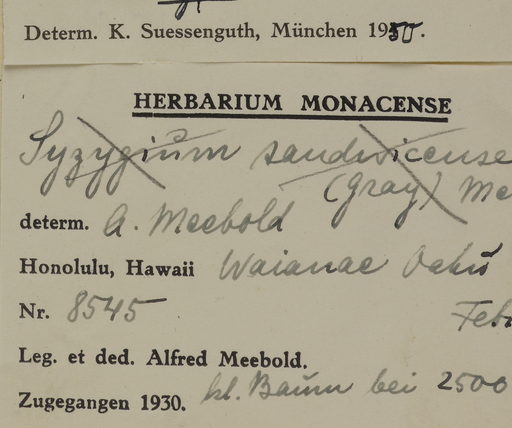 Determ. K. Suessenguth, München 1950.
HERBARIUM MONACENSE
Syzygium sandwicense
(Gray) Me
determ. A. Meebold
Honolulu, Hawaii Waianae Oahu
Nr. 8545 Feb
Leg. et ded. Alfred Meebold.
Zugegangen 1930. kl. Baum bei 2500